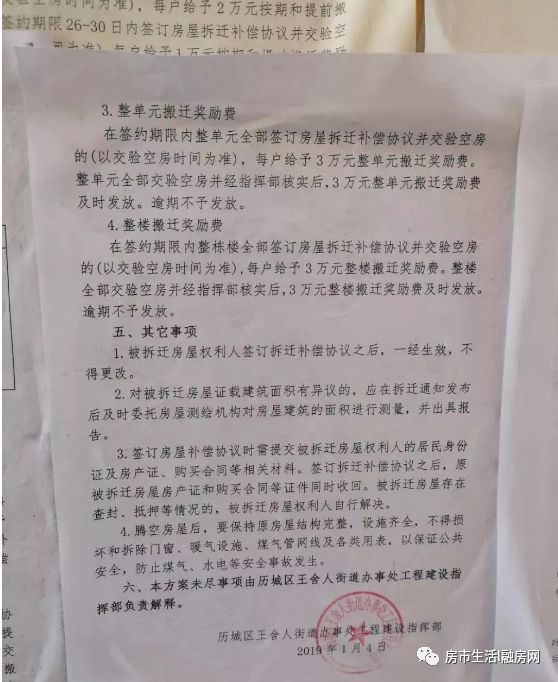 时间为准)，每户给予2万元按期和提前搬
签约期限26-30日内签订房屋拆迁补偿协议并交验空
3.整单元搬迁奖励费
在签约期限内整单元全部签订房屋拆迁补偿协议并交验空房
的(以交验空房时间为准)，每户给予3万元整单元搬迁奖励费。
整单元全部交验空房并经指挥部核实后,3万元整单元搬迁奖励费
及时发放。逾期不予发放。
4.整楼搬迁奖励费
在签约期限内整栋楼全部签订房屋拆迁补偿协议并交验空房
的(以交验空房时间为准),每户给予3万元整楼搬迁奖励费。整楼
全部交验空房并经指挥部核实后,3万元整楼搬迁奖励费及时发放。
逾期不予发放。
五、其它事项
1.被拆迁房屋权利人签订拆迁补偿协议之后，一经生效，不
得更改。
2.对被拆迁房屋证载建筑面积有异议的，应在拆迁通知发布
后及时委托房屋测绘机构对房屋建筑的面积进行测量，并出具报
告。
3.签订房屋补偿协议时需提交被拆迁房屋权利人的居民身份
证及房产证、购买合同等相关材料。签订拆迁补偿协议之后，原
被拆迁房屋房产证和购买合同等证件同时收回。被拆迁房屋存在
查封、抵押等情况的，被拆迁房屋权利人自行解决。
4.腾空房屋后，要保持原房屋结构完整，设施齐全，不得损
坏和拆除门窗、暖气设施、煤气管网线及各类用表，以保证公共
安全，防止煤气、水电等安全事故发生。
六、本方案未尽事项由历城区王舍人街道办事处工程建设指
挥部负责解释。
历城区王舍人街道办事处工程建设指挥部
2019年1月4日
房市生活I融房网